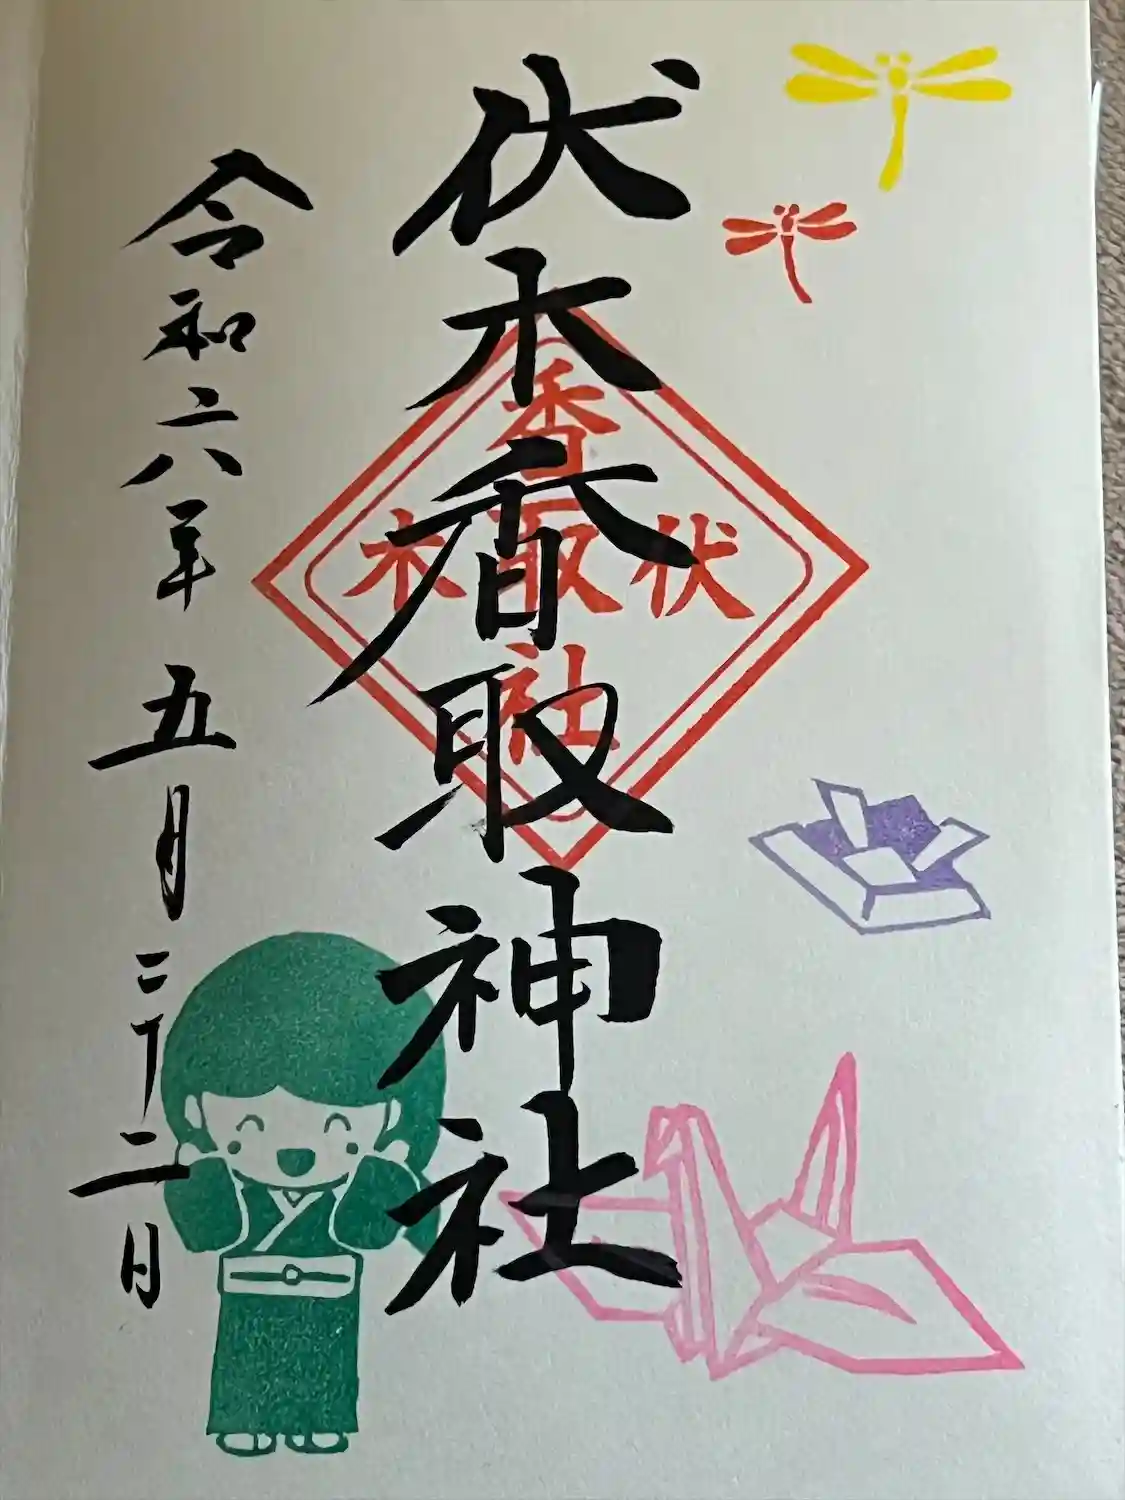 伏木香取神社
香取社
伏木
令和六年 五月二十二日